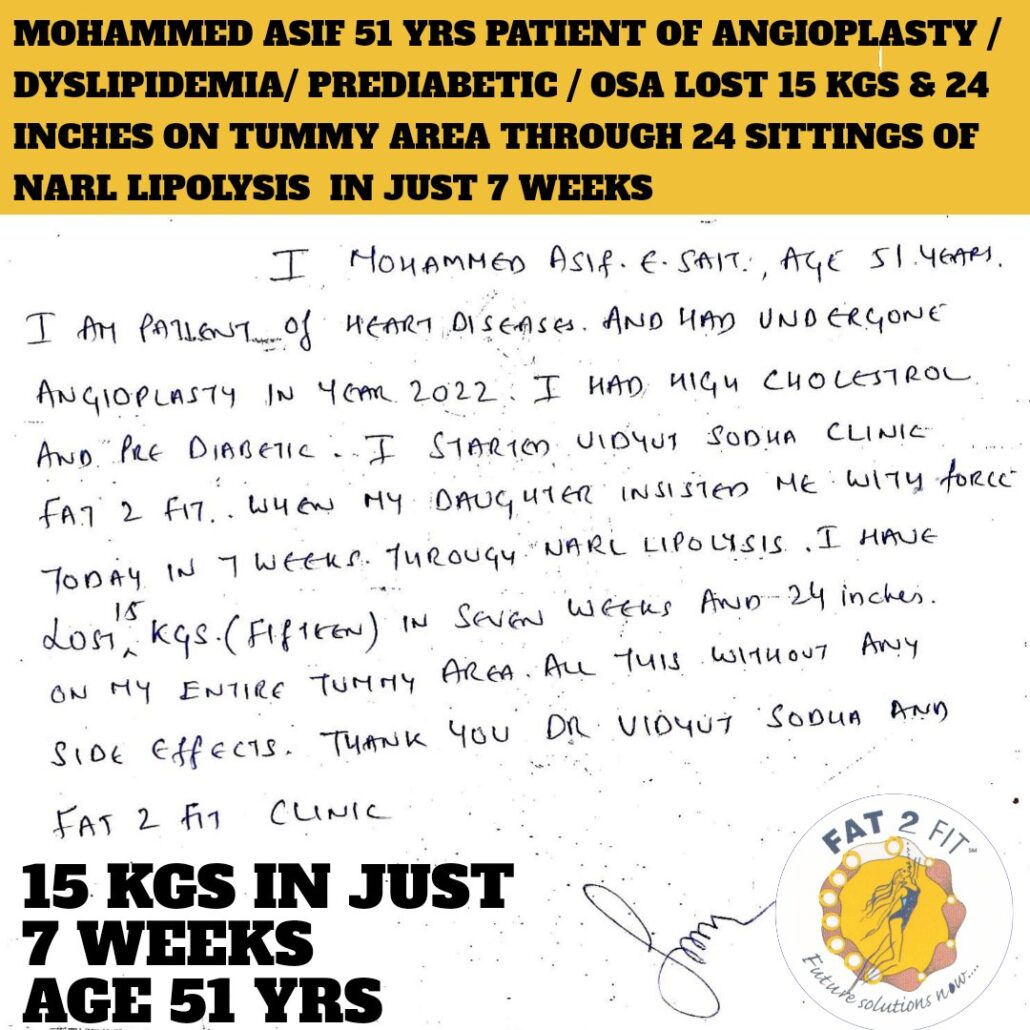 MOHAMMED ASIF 51 YRS PATIENT OF ANGIOPLASTY /
DYSLIPIDEMIA/ PREDIABETIC / OSA LOST 15 KGS & 24
INCHES ON TUMMY AREA THROUGH 24 SITTINGS OF
NARL LIPOLYSIS IN JUST 7 WEEKS
I MOHAMMED ASIF. E. SAIT., AGE 51 YEARS.
I AM PATIENT of HEART DISEASES. AND HAD UNDERGONE
ANGIOPLASTY IN YEAR 2022. I HAD HIGH CHOLESTROL
AND PRE DIABETIC. I STARTED VIDYUT SODHA CLINIC
FAT 2 FIT. WHEN MY DAUGHTER INSISTED ME WITH force
TODAY IN 7 WEEKS. THROUGH NARL LIPOLYSIS. I HAVE
LOST 15 KGS. (FIFTEEN) IN SEVEN WEEKS AND 24 inches.
ON MY ENTIRE TUMMY AREA. ALL THIS WITHOUT ANY
SIDE EffECTS. THANK YOU DR VIDYUT SODHA AND
FAT 2 FIT CLINIC
15 KGS IN JUST
7 WEEKS
AGE 51 YRS
FAT 2 FIT SM
Future solutions now....